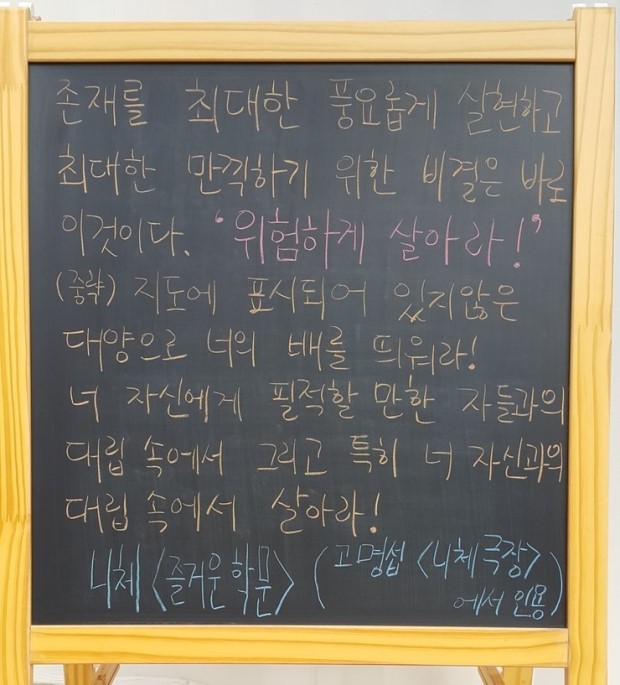 존재를 최대한 풍요롭게 실현하고
최대한 만끽하기 위한 비결은 바로
이것이다. '위험하게 살아라!'
(중략) 지도에 표시되어 있지않은
대양으로 너의 배를 띄워라!
너 자신에게 필적할 만한 자들과의
대립 속에서 그리고 특히 너 자신과의
대립 속에서 살아라!
니체 <즐거운 학문> (고명섭 <니체 극장>
에서 인용)